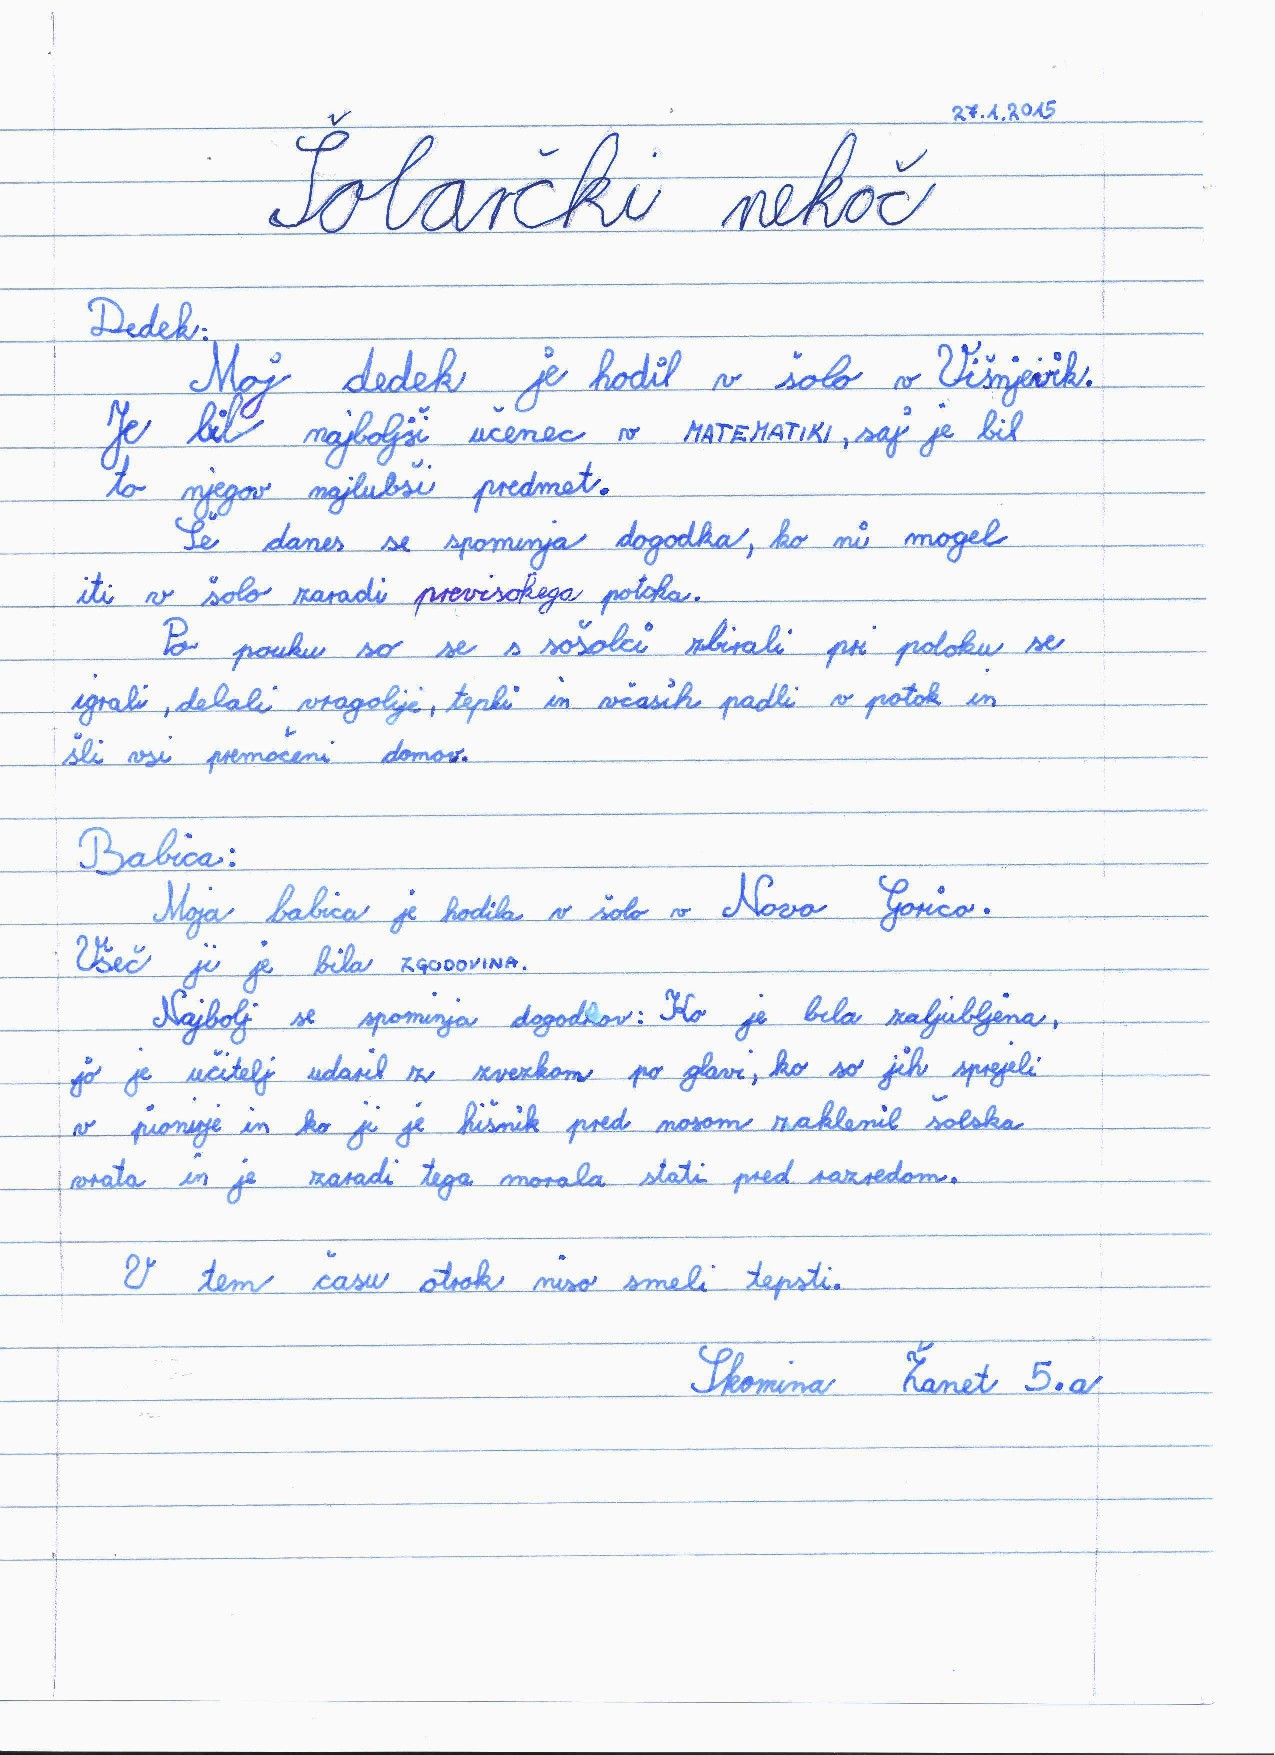 27.1.2015
Šolarčki nekoč
Dedek:
Moj dedek je hodil v šolo v Višnjevik.
Je bil najboljši učenec v MATEMATIKI, saj je bil
to njegov najlubši predmet.
Še danes se spominja dogodka, ko ni mogel
iti v šolo zaradi previsokega potoka.
Po pouku so se s sošolci zbirali pri potoku se
igrali, delali vragolije, tepli in včasih padli v potok in
šli vsi premočeni domov.
Babica:
Moja babica je hodila v šolo v Novo Gorico.
Všeč ji je bila ZGODOVINA.
Najbolj se spominja dogodkov: Ko je bila zaljubljena,
jo je učitelj udaril z zvezkom po glavi, ko so jih sprejeli
v pionirje in ko ji je hišnik pred nosom zaklenil šolska
vrata in je zaradi tega morala stati pred razredom.
V tem času otrok niso smeli tepsti.
Skomina Žanet 5.a